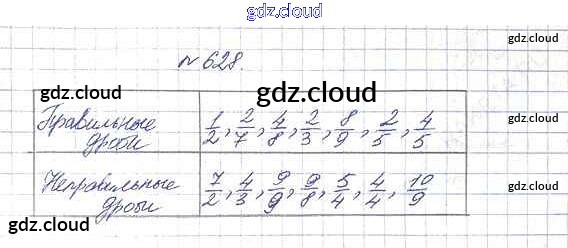 gdz.cloud
№ 628.
gdz.cloud
gdz.cloud
gdz.cloud
Правильные дроби
1/2, 2/7, 4/8, 2/3, 8/9, 2/5, 4/5
Неправильные дроби
7/2, 4/3, 9/9, 9/8, 5/4, 4/4, 10/9
gdz.cloud
gdz.cloud
gdz.cloud